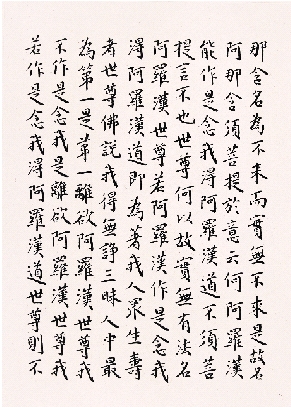 那含名為不來而實無不来是故名
阿那含須菩提於意云何阿羅漢
能作是念我得阿羅漢道不須菩
提言不也世尊何以故實無有法名
阿羅漢世尊若阿羅漢作是念我
得阿羅漢道即為著我人眾生壽
者世尊佛說我得無諍三昧人中最
為第一是第一離欲阿羅漢世尊我
不作是念我是離欲阿羅漢世尊我
若作是念我得阿羅漢道世尊則不